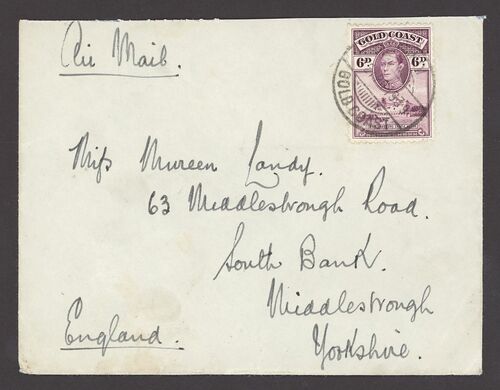 Air Mail.
GOLD COAST
6D. 6D.
GOLD COAST
Miss Mureen Landy.
63 Middlesbrough Road.
South Bank.
Middlesbrough
England.
Yorkshire.